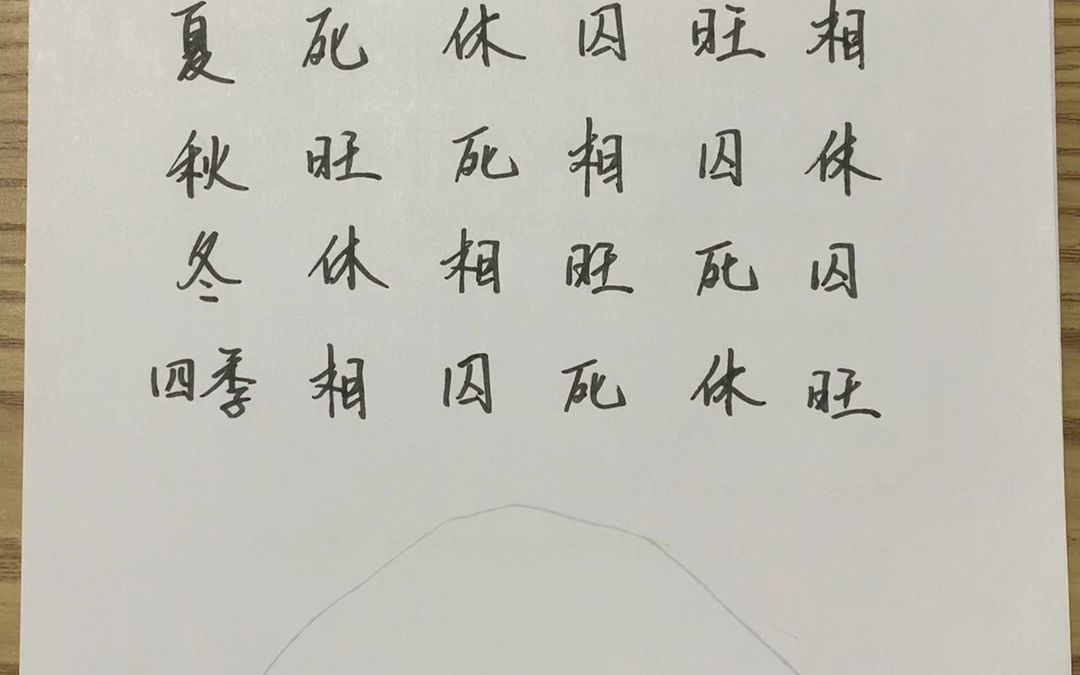 夏 死 休 囚 旺 相
秋 旺 死 相 囚 休
冬 休 相 旺 死 囚
四季 相 囚 死 休 旺